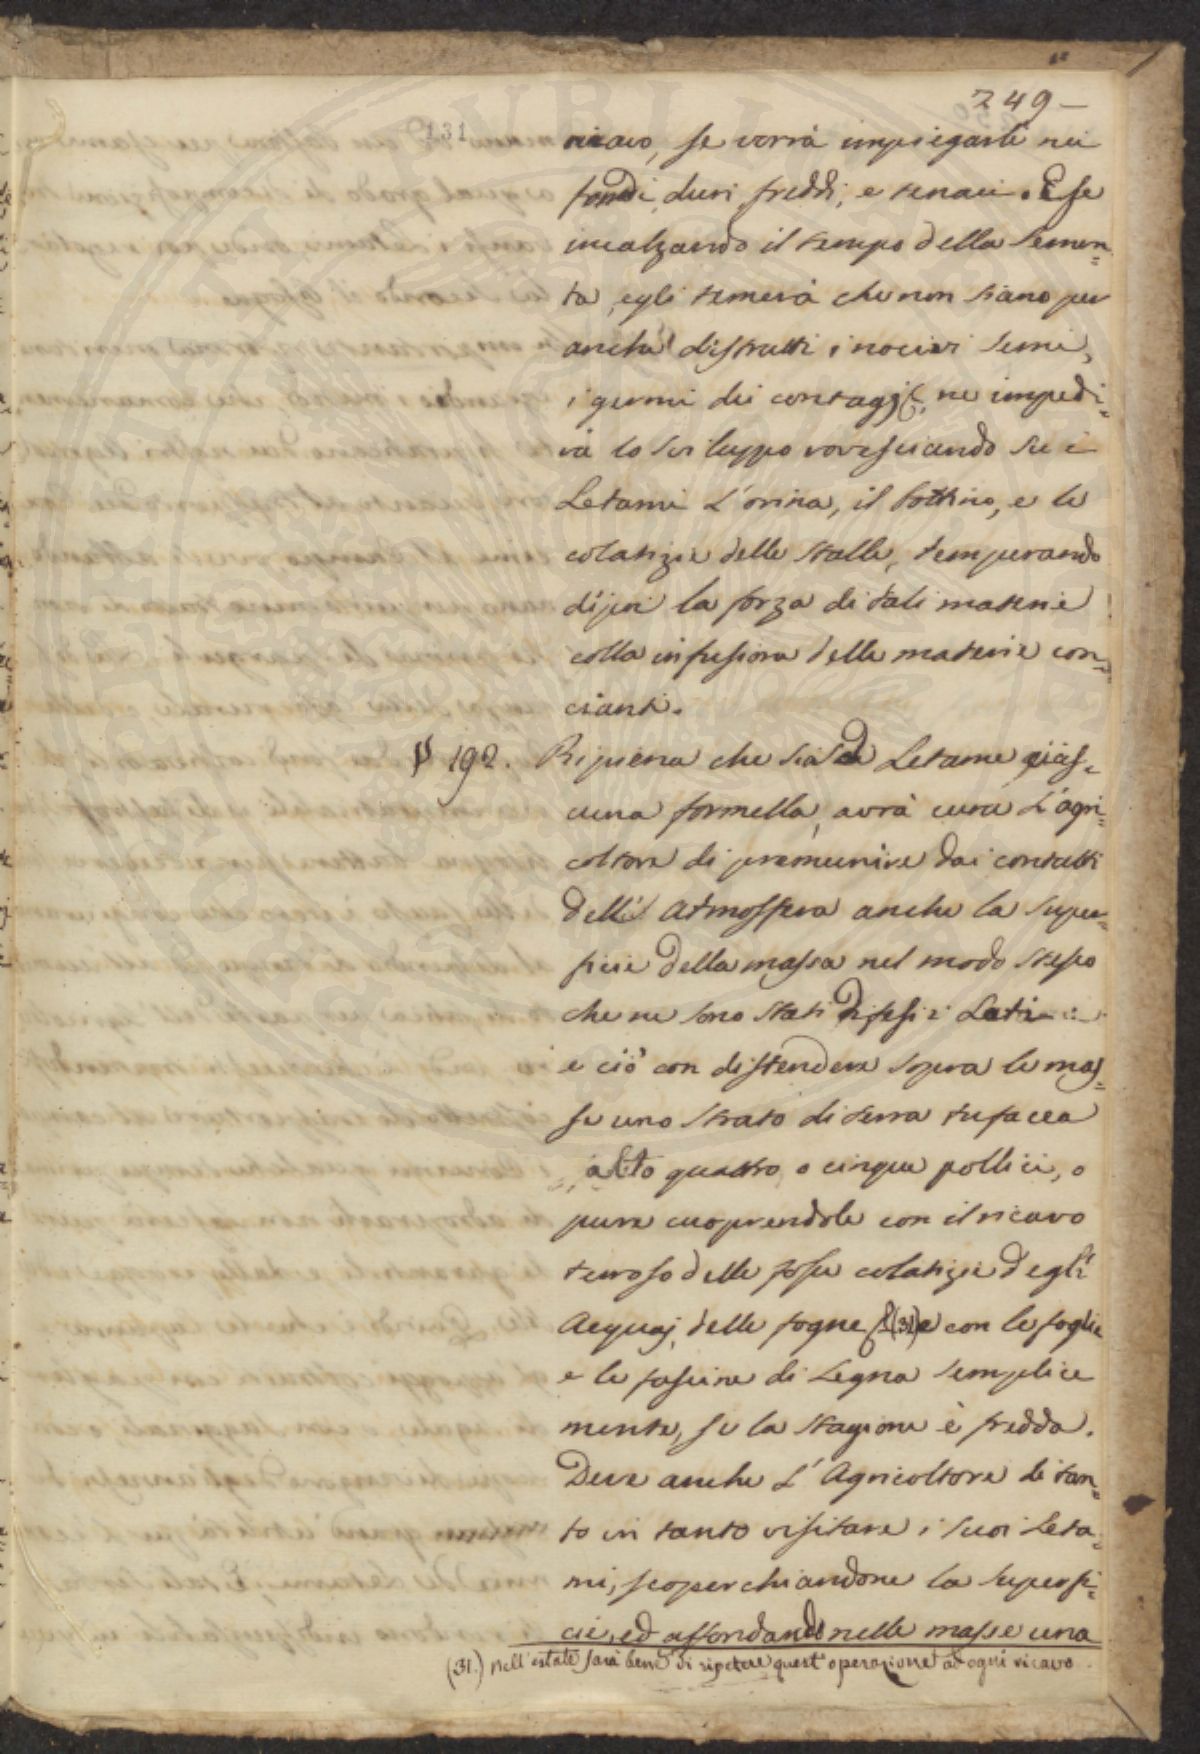 249-
131
ricavo, se vorrà impiegarli nei
fondi, duri, freddi, e tenaci. E se
incalzando il tempo della semen=
ta, egli temerà che non siano per
anche distrutti i nocivi semi,
i germi dei contaggj, ne impedi=
rà lo sviluppo rovesciando su i
Letami L'orina, il bottino, e le
colatizie delle stalle, temperando
dipoi la forza di tali materie
colla infusione delle materie con=
cianti.
§ 192. Ripiena che sia di Letame cias=
cuna formella, avrà cura L'agri=
coltore di premunire dai contatti
dell' Atmosfera anche la super=
ficie della massa nel modo stesso
che ne sono stati difesi i Lati
e ciò con distendere sopra le mas=
se uno strato di terra tufacea
alto quattro, o cinque pollici, o
pure cuoprendole con il ricavo
terroso delle fosse colatizie degli
Acquaj, delle fogne (31) e con le foglie
e le fascine di Legna semplice
mente, se la stagione è fredda.
Deve anche L'Agricoltore di tan=
to in tanto visitare i suoi Leta=
mi, scoperchiandone la superfi=
cie, ed affondando nelle masse una
(31.) Nell'estate sarà bene di ripetere quest'operazione ad ogni ricavo